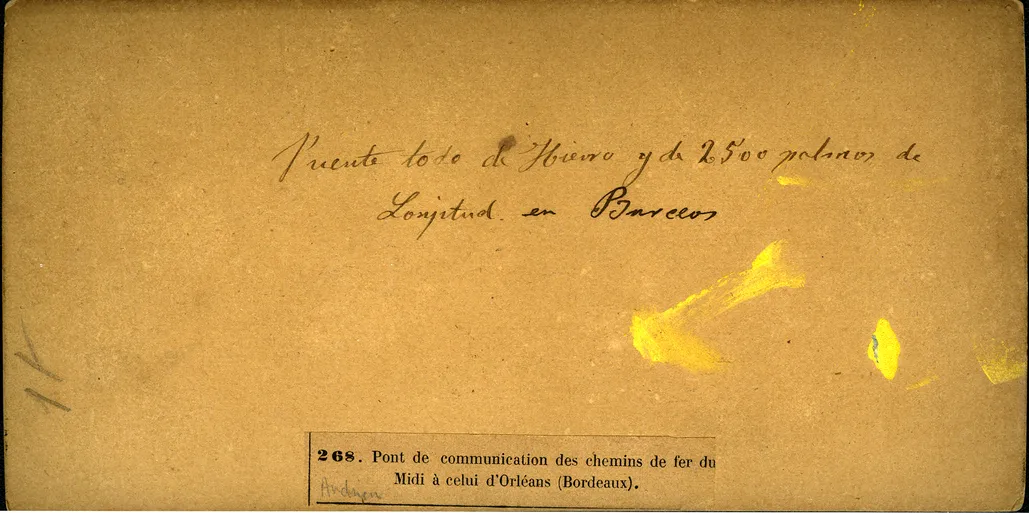 Puente todo de Hierro y de 2500 palmos de
Longitud. en Burdeos
11
268. Pont de communication des chemins de fer du
Midi à celui d'Orléans (Bordeaux).
Andrieu